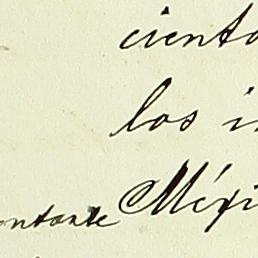 ciento
los i
ontante Méxi